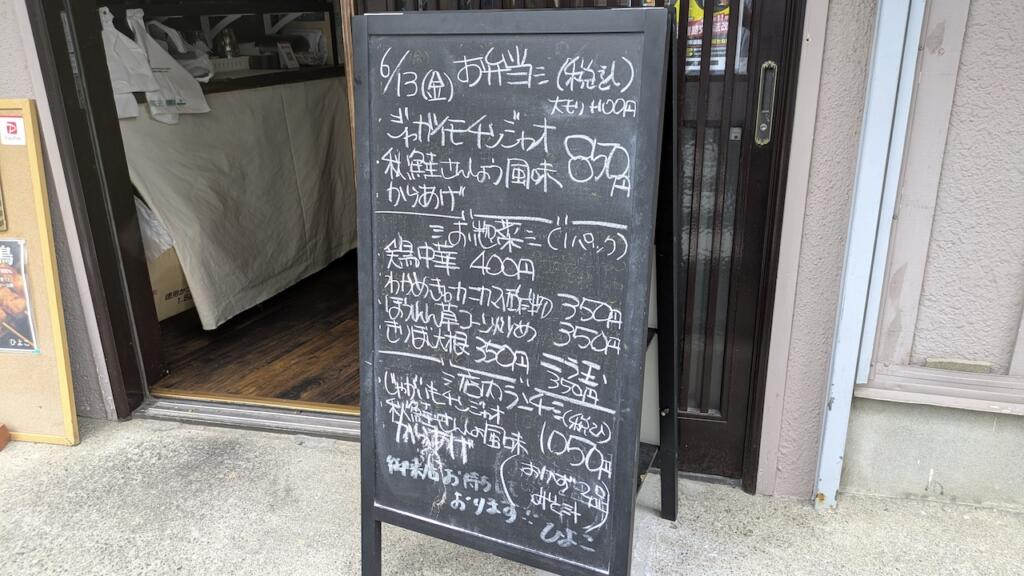 6/13(金) お弁当(税込)
大モリ+100円
・ジャガイモチンジャオ
・秋鮭さんしょう風味
からあげ
850円
お惣菜(1パック)
鶏中華 400円
わかめきゅうカニカマ酢の物 350円
ほうれん草コーン炒め 350円
きりぼし大根 350円
350円
店内ランチ(税込)
じゃがいもチンジャオ
秋鮭さんしょう風味
からあげ
1050円
おかず
みそ汁
御来店お待ちして
おります
ひよこ